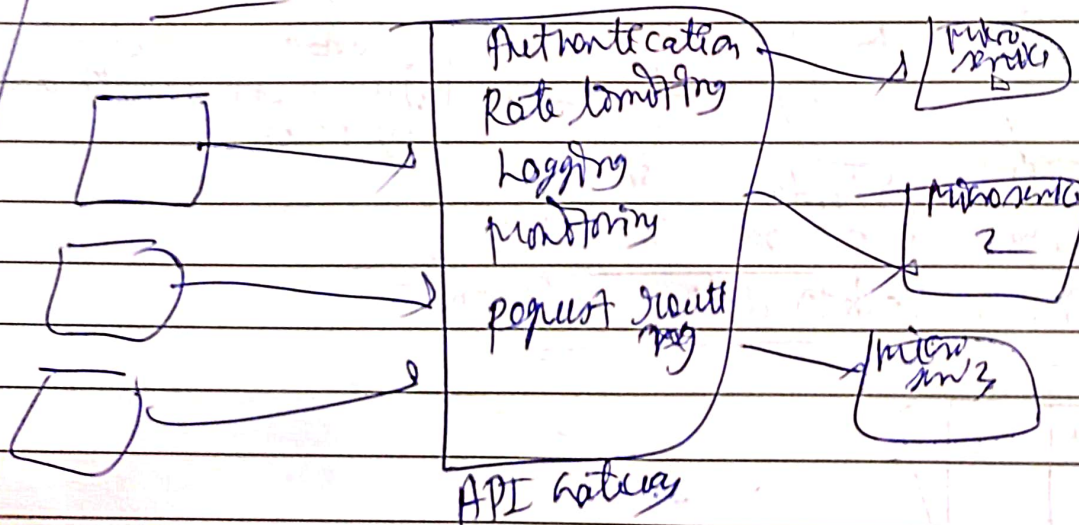 Authentication
Rate limiting
Logging
Monitoring
Request routi
ng
API Gateway
Micro
service
Microservice
2
Micro
ser 3